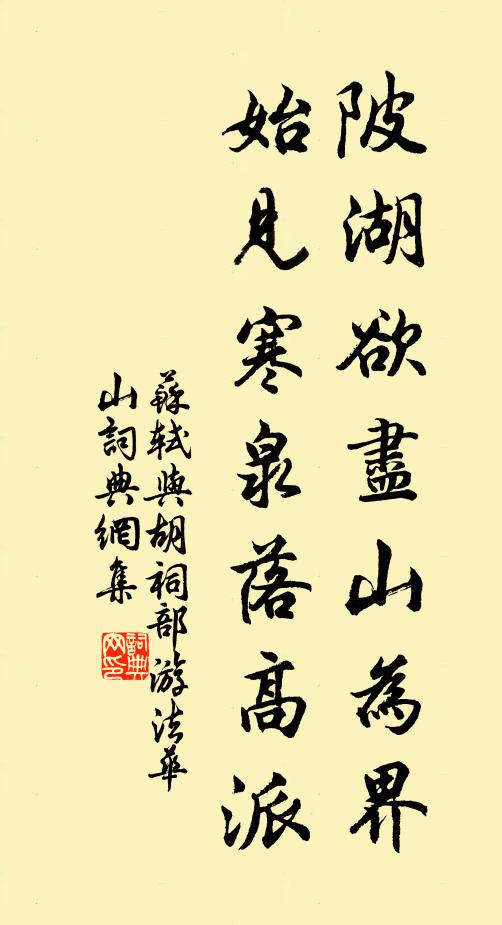 陂湖欲盡山為界
始見寒泉落高派
蘇軾與胡祠部游法華
山詞典網集
詞典
网印